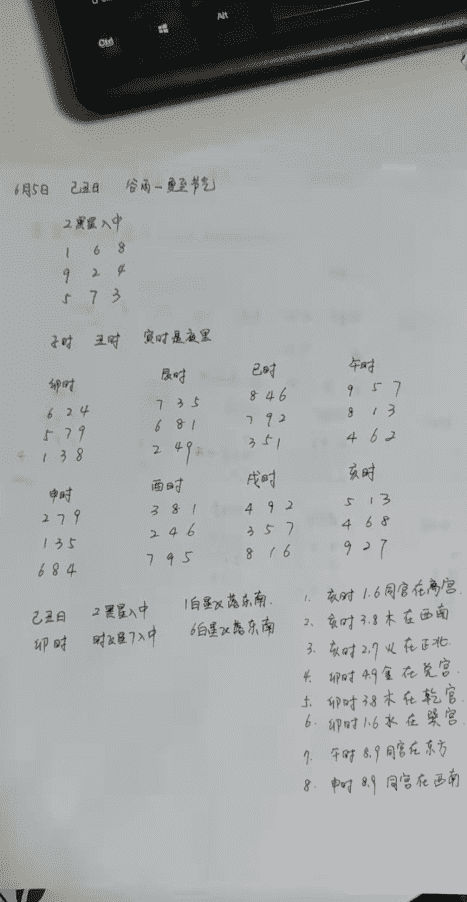 Ctrl
Alt
6月5日 己丑日 谷雨-夏至节气
2黑星入中
1 6 8
9 2 4
5 7 3
子时 丑时 寅时是夜里
卯时 辰时 巳时 午时
6 2 4 7 3 5 8 4 6 9 5 7
5 7 9 6 8 1 7 9 2 8 1 3
1 3 8 2 4 9 3 5 1 4 6 2
申时 酉时 戌时 亥时
2 7 9 3 8 1 4 9 2 5 1 3
1 3 5 2 4 6 3 5 7 4 6 8
6 8 4 7 9 5 8 1 6 9 2 7
己丑日 2黑星入中 1白星飞落东南.
卯时 时 7入中 6白星飞落东南
1. 亥时 1.6同宫在离宫.
2. 亥时 3.8木在西南
3. 亥时 2.7火在正北.
4. 卯时 4.9金在兑宫.
5. 卯时 3.8木在乾宫.
6. 卯时 1.6水在巽宫.
7. 午时 8.9同宫在东方
8. 申时 8.9同宫在西南